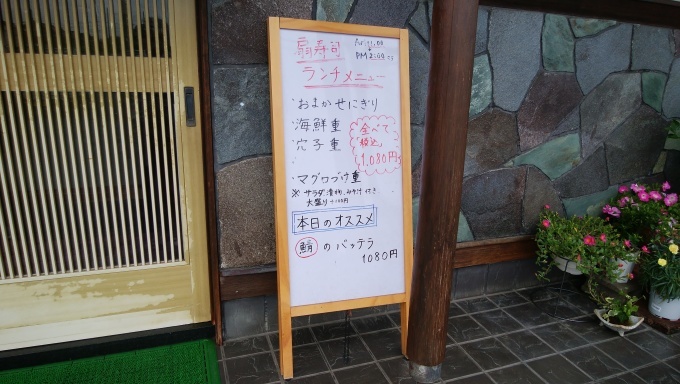 扇寿司
AM11:00
↓
PM2:00まで
ランチメニュー
・おまかせにぎり
・海鮮重
・穴子重
全べて
税込
1,080円
・マグロづけ重
※ サラダ、漬物、みそ汁付き
大盛り+100円
本日のオススメ
鯖のバッテラ
1080円